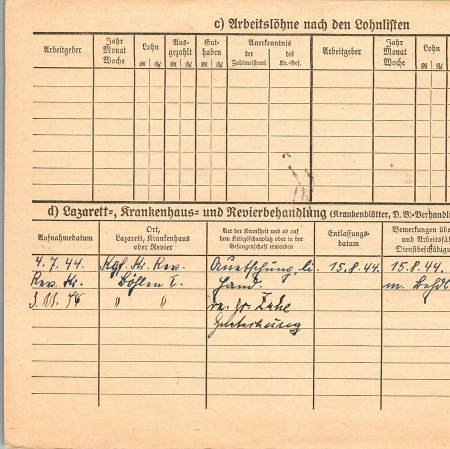 c) Arbeitslöhne nach den Lohnlisten
Arbeitgeber Jahr Monat Woche Lohn RM Rpf Ausgezahlt RM Rpf Guthaben RM Rpf Anerkenntnis der Zahlmeisterei des Kr.-Gef. Arbeitgeber Jahr Monat Woche Lohn RM Rpf
d) Lazarett-, Krankenhaus- und Revierbehandlung (Krankenblätter, D. B.-Verhandl
Aufnahmedatum Ort, Lazarett, Krankenhaus oder Revier Art der Krankheit und ob auf dem Kriegsschauplatz oder in der Gefangenschaft erworben Entlassungsdatum Bemerkungen übe und Arbeitsfäh Dienstbeschädigu
4.7.44. Kgf. Kr. Rev. Quetschung li. 15.8.44. 15.8.44.
Rev. Kr. Böhlen I. Hand. m. Behdl
3.11. " " re. gr. Zehe